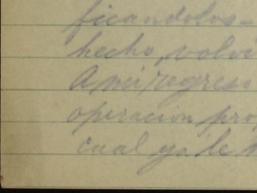 ficandolos-
hecho, volvi
A mi regreso
operacion pro
cual ya le